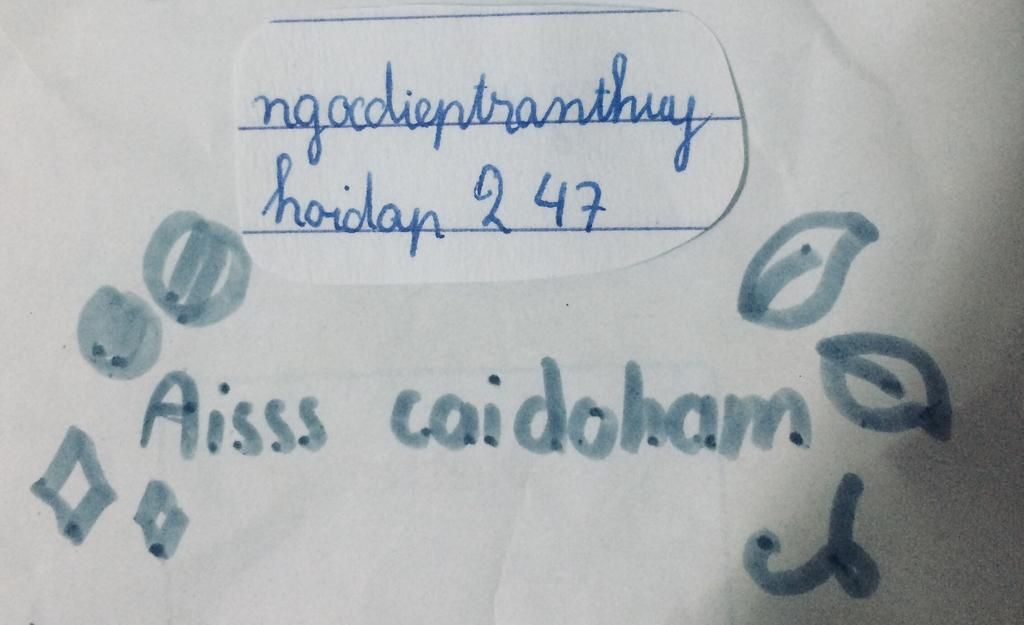 ngocdieptranthuy
hoidap 247
Aisss caidoham